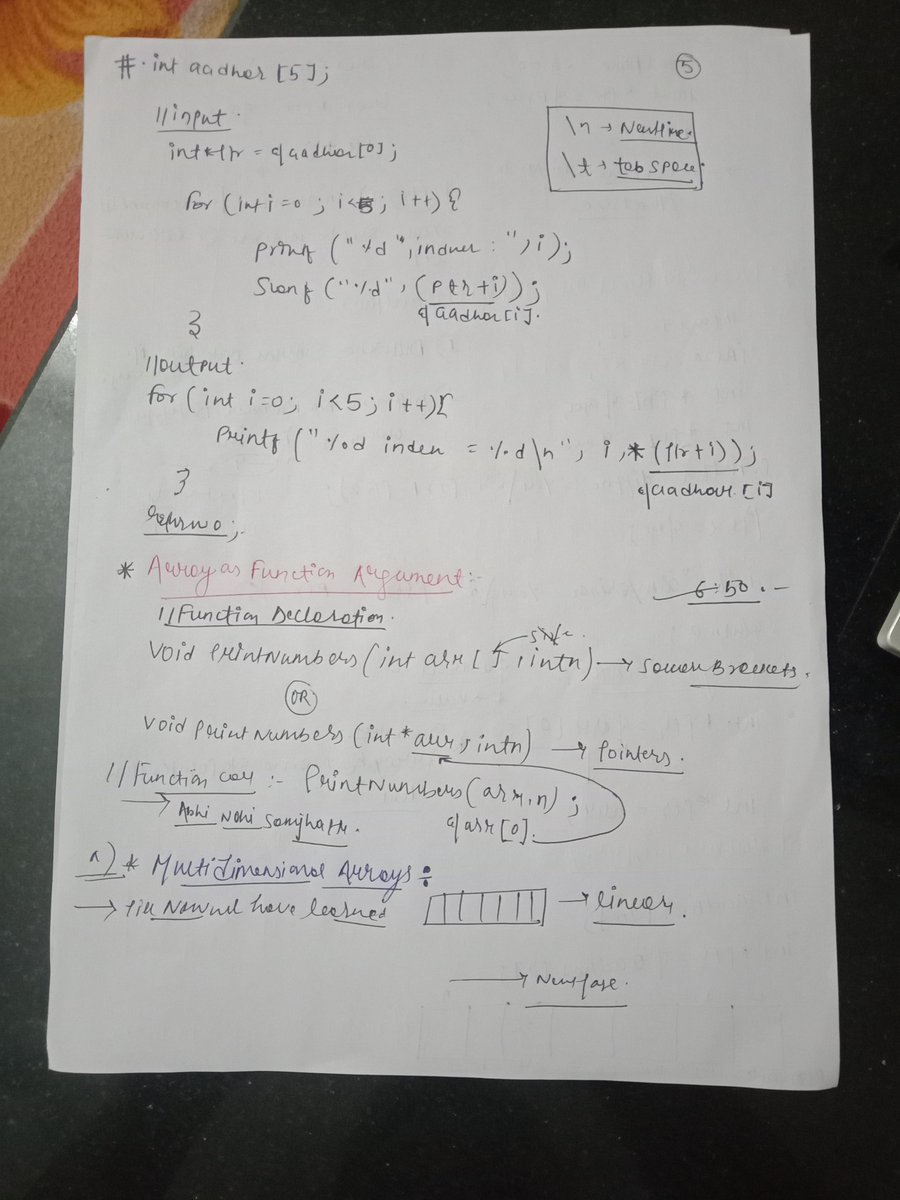 #. int aadhar [5];
⑤
//input.
\n → Newline.
\t → tab space.
int *ptr = &aadhar[0];
for (int i=0 ; i<5; i++) {
printf ("%d", index : ", i);
Scanf ("%d", (ptr+i));
&aadhar[i].
}
//output.
for (int i=0; i<5; i++){
Printf ("%d index = %d\n", i, *(ptr+i));
&aadhar[i]
}
return 0;.
* Array as Function Argument:-
6:50.-
//Function Declaration.
Void PrintNumbers (int arr [ ], int n) → Square Brackets.
OR
Void Print Numbers (int *arr, int n) → Pointers.
//Function call :- PrintNumbers(arr,n);
→ Abhi Nahi Samjha
&arr[0].
* Multidimensional Arrays:
→ till Now we have learned → linear.
→ Next page.